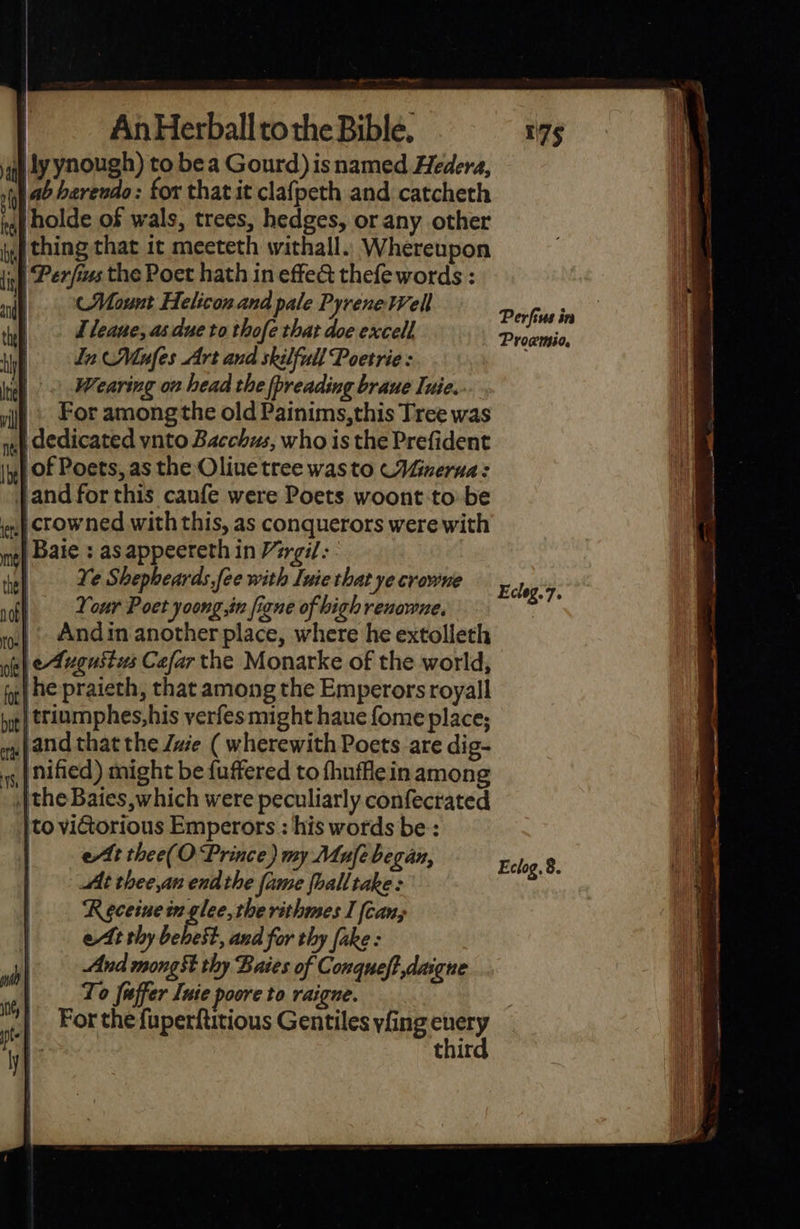 An Herball to the Bible. 175
ly ynough) to be a Gourd) is named Hedera,
ab hærendo: for that it claſpeth and catcheth
holde of wals, trees, hedges, or any other
thing that it meeteth withall. Whereupon
Perſius the Poet hath in effect theſe words :
Mount Helicon and pale Pyrene Well
I leaue, as due to thoſe that doe excell
In Muſes Art and skilfull Poetrie :
Wearing on head the ſpreading braue Iuie.
Perſius in
Proæmio.
For among the old Painims, this Tree was
dedicated vnto Bacchus, who is the Preſident
of Poets, as the Oliue tree was to Minerua :
and for this cauſe were Poets woont to be
crowned with this, as conquerors were with
Baie : as appeereth in Virgil :
Ye Shepheards, ſee with Iuie that ye crowne
Your Poet yoong, in ſigne of high renowne.
Eclog. 7.
And in another place, where he extolleth
Auguſtus Cæſar the Monarke of the world,
he praieth, that among the Emperors royall
triumphes, his verſes might haue ſome place;
and that the Iuie ( wherewith Poets are dig-
nified) might be ſuffered to ſhuffle in among
the Baies, which were peculiarly conſecrated
to victorious Emperors : his words be :
At thee (O Prince) my Muſe began,
At thee, an end the ſame ſhall take :
Receiue in glee, the rithmes I ſcan,
At thy beheſt, and for thy ſake :
And mongſt thy Baies of Conqueſt, daigne
To ſuffer Iuie poore to raigne.
Eclog. 8.
For the ſuperſtitious Gentiles vſing euery
third